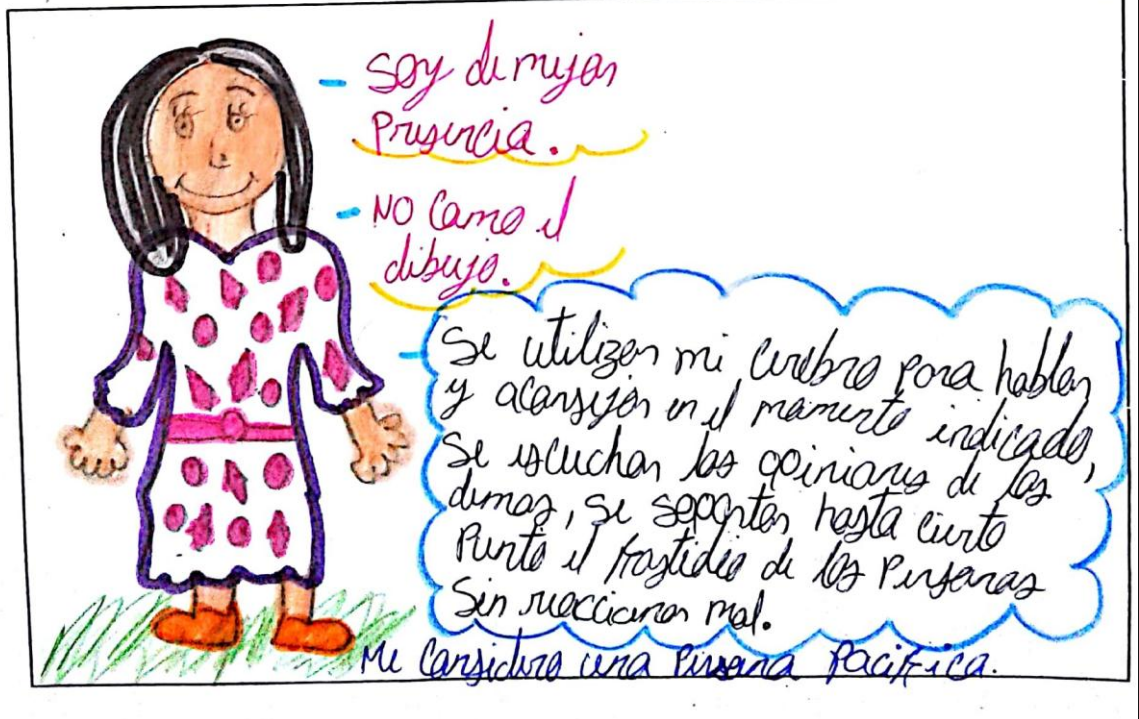 - Soy de mejor
Presencia.
- No como el
dibujo.
- Se utilizar mi cerebro para hablar
y aconsejar en el momento indicado,
Se escuchar las opiniones de los
demas, se soportar hasta cierto
Punto el frastidio de las Personas
Sin reaccionar mal.
Me Considero una Persona Pacifica.